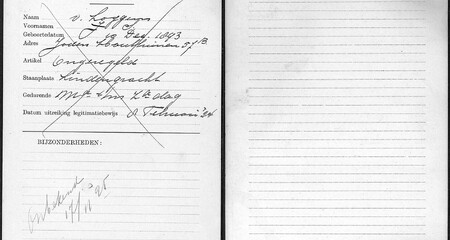 Naam v. Loggem
Voornamen J.
Geboortedatum 19 Dec. 1893
Adres Joden Houttuinen 57 III
Artikel Ongeregeld
Staanplaats Lindengracht
Gedurende t/m Zdag
Datum uitreiking legitimatiebewijs Februari '24
BIJZONDERHEDEN:
Onbekend
17/11 25